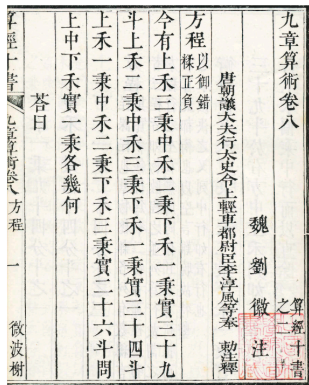 九章算術卷八
算經十書
之二
魏 劉徽 注
唐朝議大夫行太史令上輕車都尉臣李淳風等奉 勅注釋
方程 以御錯
糅正負
今有上禾三秉中禾二秉下禾一秉實三十九
斗上禾二秉中禾三秉下禾一秉實三十四斗
上禾一秉中禾二秉下禾三秉實二十六斗問
上中下禾實一秉各幾何
荅曰
算經十書 九章算術卷八 方程 一 微波榭